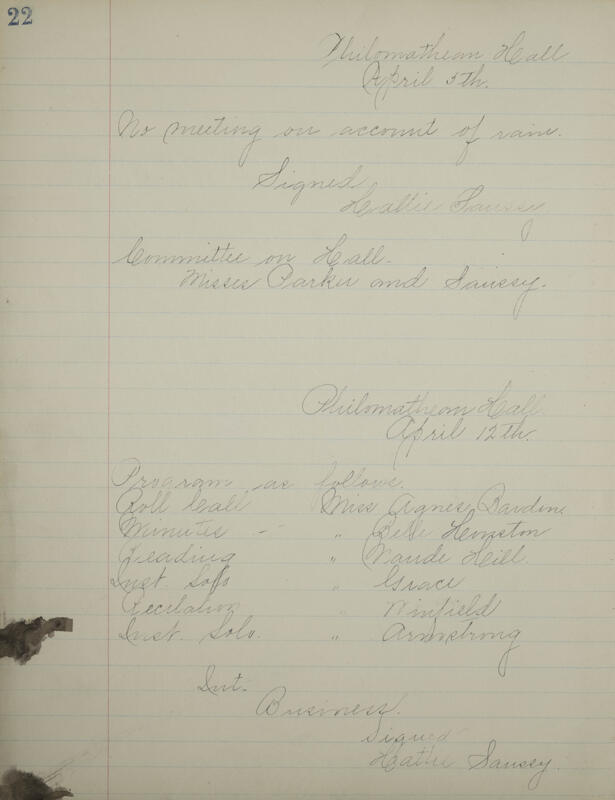 22
Philomathean Hall
April 5th.
No meeting on account of rain.
Signed
Hattie Saussy.
Committee on Hall.
Misses Parker and Saussy.
Philomathean Hall
April 12th.
Program as follows.
Roll Call Miss Agnes
Minutes - " Belle Houston
Reading " Maude Heill
Inst. Solo " Grace
Recitation " Winfield
Inst. Solo. " Armstrong
Int.
Business.
Signed
Hattie Saussy.